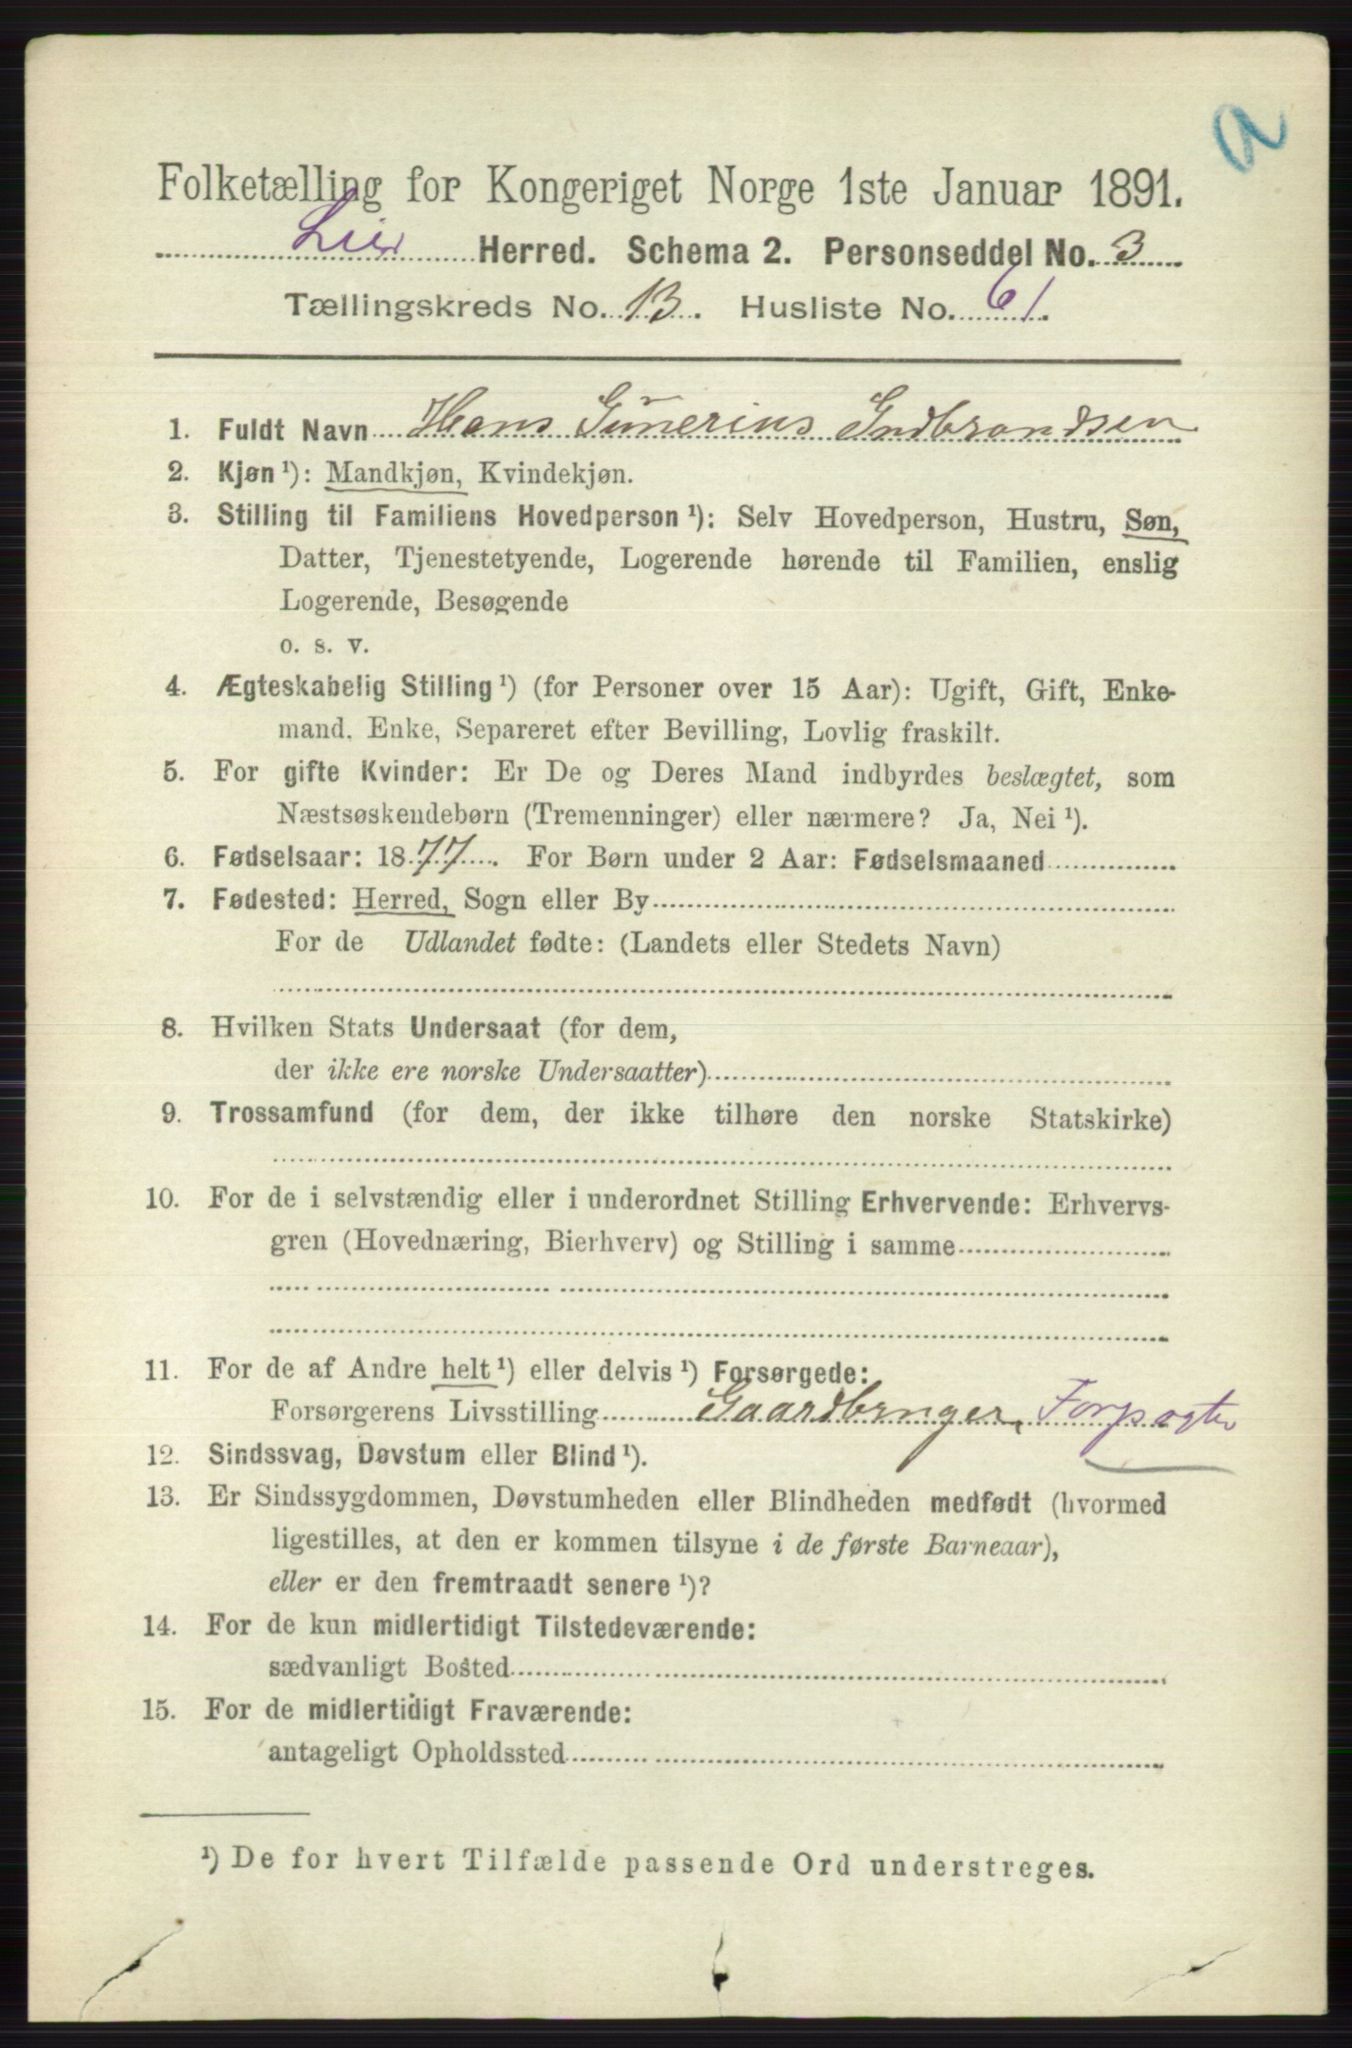 a
Folketælling for Kongeriget Norge 1ste Januar 1891.
Lier Herred. Schema 2. Personseddel No. 3
Tællingskreds No. 13. Husliste No. 61.
1. Fuldt Navn Hans Gunerius Gudbrandsen
2. Kjøn ¹): Mandkjøn, Kvindekjøn.
3. Stilling til Familiens Hovedperson ¹): Selv Hovedperson, Hustru, Søn,
Datter, Tjenestetyende, Logerende hørende til Familien, enslig
Logerende, Besøgende
o. s. v.
4. Ægteskabelig Stilling ¹) (for Personer over 15 Aar): Ugift, Gift, Enke-
mand, Enke, Separeret efter Bevilling, Lovlig fraskilt.
5. For gifte Kvinder: Er De og Deres Mand indbyrdes beslægtet, som
Næstsøskendebørn (Tremenninger) eller nærmere? Ja, Nei ¹).
6. Fødselsaar: 1877. For Børn under 2 Aar: Fødselsmaaned
7. Fødested: Herred, Sogn eller By
For de Udlandet fødte: (Landets eller Stedets Navn)
8. Hvilken Stats Undersaat (for dem,
der ikke ere norske Undersaatter)
9. Trossamfund (for dem, der ikke tilhøre den norske Statskirke)
10. For de i selvstændig eller i underordnet Stilling Erhvervende: Erhvervs-
gren (Hovednæring, Bierhverv) og Stilling i samme
11. For de af Andre helt ¹) eller delvis ¹) Forsørgede:
Forsørgerens Livsstilling Gaardbruger, Forpagter
12. Sindssvag, Døvstum eller Blind ¹).
13. Er Sindssygdommen, Døvstumheden eller Blindheden medfødt (hvormed
ligestilles, at den er kommen tilsyne i de første Barneaar),
eller er den fremtraadt senere ¹)?
14. For de kun midlertidigt Tilstedeværende:
sædvanligt Bosted
15. For de midlertidigt Fraværende:
antageligt Opholdssted
¹) De for hvert Tilfælde passende Ord understreges.